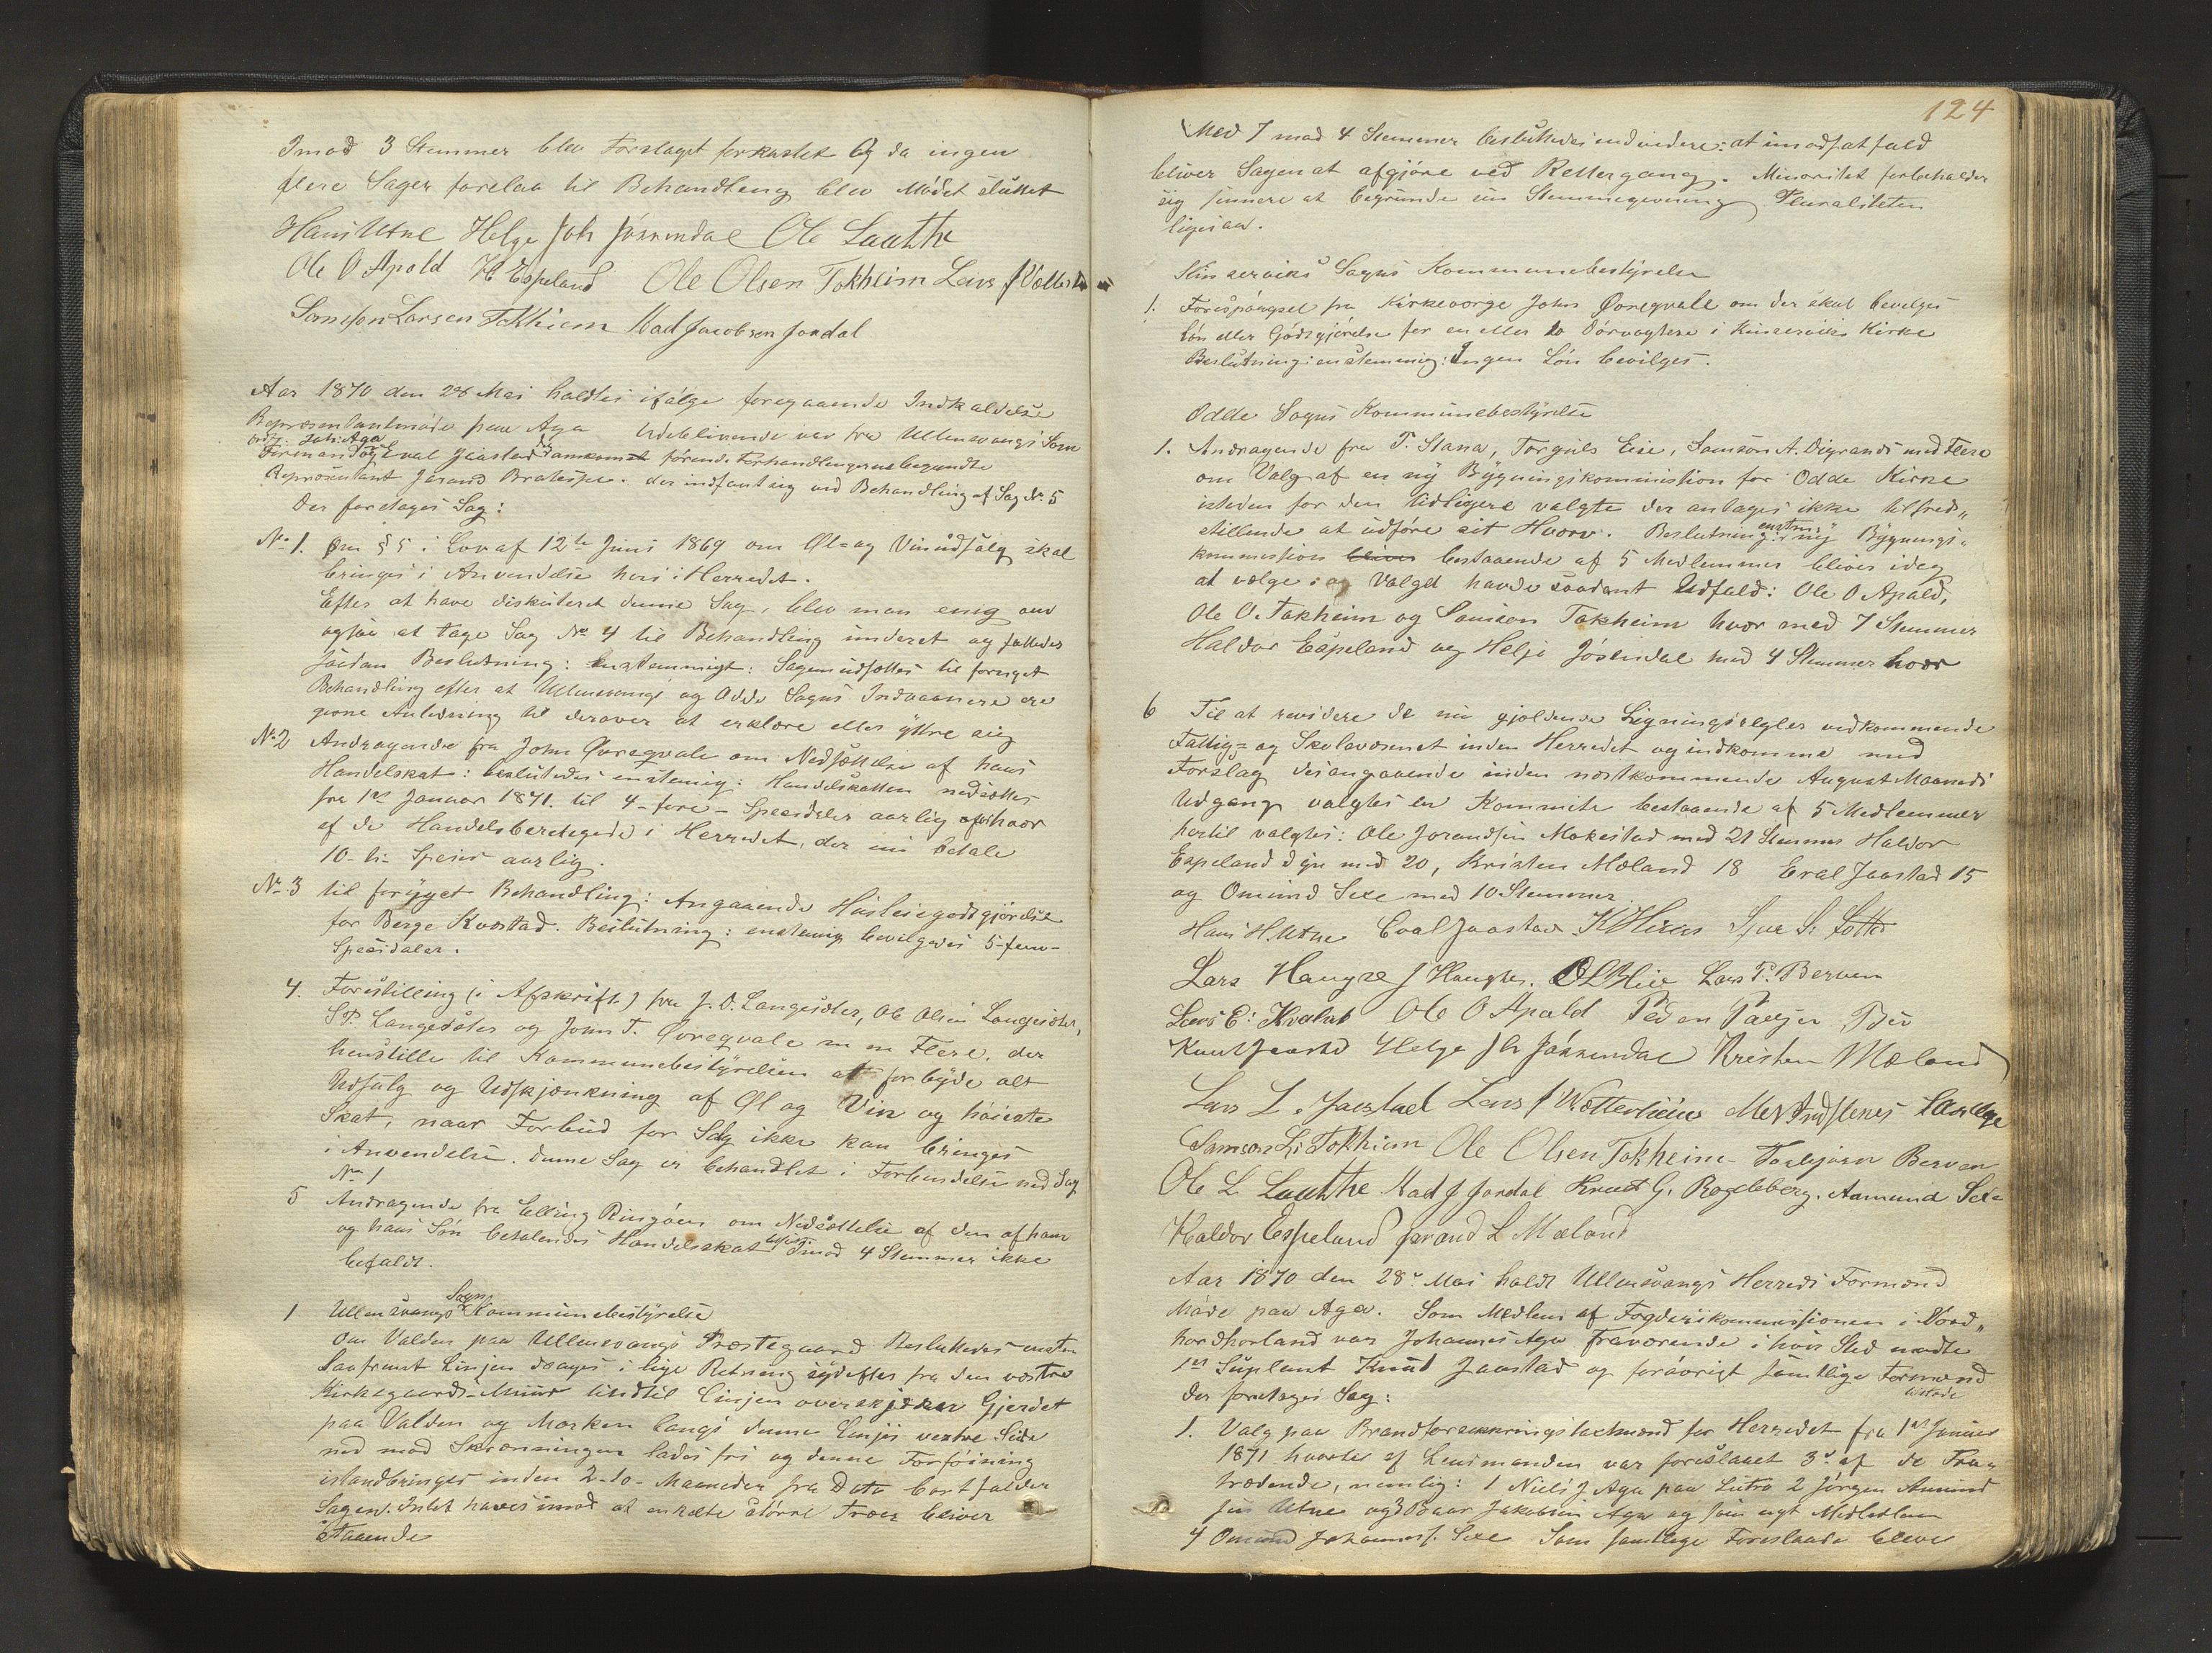 Imod 3 Stemmer blev Forslaget forkastet Og da ingen
flere Sager forelaa til Behandling blev Mødet sluttet
Hans Utne Helge Joh Jøsendal Ole Lauthe
Ole O Apold H. Espeland Ole Olsen Tokheim Lars J
Samson Larsen Tokhiem Mad Jacobsen Jordal
Aar 1870 den 28 Mai holdtes ifølge foregaaende Indkaldelse
Repræsentantmøde paa Aga Udeblivende var fra Ullensvangs Sogn
ordf. Joh: Aga
Formand og Eval Jaastad ankomst førend Forhandlingerne begyndte
Repræsentant Jorand Bratespe. der indfant sig ved Behandling af Sag No. 5
Der foretages Sag:
No 1. Om § 5 i Lov af 12te Juni 1869 om Øl- og Vinudsalg skal
bringes i Anvendelse her i Herredet.
Efter at have diskuteret denne Sag, blev man enig om
ogsaa at tage Sag No 4 til Behandling underet og fattedes
saadan Beslutning: Enstemmigt: Sagen udsættes til fornyet
Behandling efter at Ullensvangs og Odde Sogns Indvaanere ere
givne Anledning til derover at erklære eller yttre sig
No 2 Andragende fra John Qvregvale om Nedsættelse af hans
Handelskat: besluttedes enstemig: Handelskatten nedsættes
fra 1ste Januar 1871. til 4-fire- Speesidaler aarlig af hvor
af de Handelsberetegede i Herredet, der nu betale
10-ti- Specier aarlig.
No 3 til fornyet Behandling: Angaaende Husleiegodtgjørelse
for Berge Kvestad. Beslutning: enstemig bevilgedes 5-fem-
Speesidaler.
4. Forestilling (i Afskrift) fra J. O. Langesæter, Ole Olsen Langesæter,
S P. Langesæter og John T. Qvregvale m m Flere, der
henstille til Kommunebestyrelsen at forbyde alt
Udsalg og Udskjænkning af Øl og Vin og høieste
Skat, naar Forbud for Salg ikke kan bringes
i Anvendelse. denne Sag er behandlet i Forbindelse med Sag
No 1
5 Andragende fra Elling Ringøen om Nedsættelse af den af ham
og hans Søn betalendes Handelsskat Imod 4 Stemmer ikke
befaldt.
1 Ullensvangs Sogns Kommunebestyrelse
Om Valden paa Ullensvangs Præstegaard Besluttedes ensten
Saafremt Linjen drages i lige Retning sydefter fra den vestre
Kirkegaards-Muur indtil Linjen overskjærer Gjerdet
paa Valden og Marken langs denne Linjes vestre Side
ned mod Skraaningen lades fri og denne Forføining
istandbringes inden 2-to- Maaneder fra Dato bortfalder
Sagen. Intet haves imod at enkelte større Træer bliver
staaende
124
Med 7 mod 4 Stemmer besluttedes endvidere: at i modsat fald
bliver Sagen at afgjøre ved Rettergang. Minoritet forbeholder
sig senere at begrunde sin Stemmegivning Pluraliteten
ligesaa.
Kinserviks Sogns Kommunebestyrelse
1. Forespørgsel fra Kirkeværge John Qvregvale om der skal bevilges
Løn eller Godtgjørelse for en eller to Dørvogtere i Kinserviks Kirke
Beslutning: enstemmig: Ingen Løn bevilges.
Odde Sogns Kommunebestyrelse
1. Andragende fra T. Stana, Torgils Eise, Samson A. Digranes med Flere
om Valg af en ny Bygningskommission for Odde Kirke
isteden for den tidligere valgte der antages ikke tilfreds„
stillende at udføre sit Hverv. Beslutning: enstm: ny Bygnings„
kommission bliver bestaaende af 5 Medlemmer blives idag
at vælge: og Valget havde saadant Udfald: Ole O Apald,
Ole O. Tokheim og Samson Tokheim hvor med 7 Stemmer
Haldor Espeland og Helje Jøsendal med 4 Stemmer hvor
6 Til at revidere de nu gjældende Ligningsregler vedkommende
Fattig- og Skolevæsenet inden Herredet og indkomme med
Forslag desangaaende inden næstkommende August Maaneds
Udgang valgtes en Kommite bestaaende af 5 Medlemmer
hertil valgtes: Ole Jorandsen Mokestad med 21 Stemmer Haldor
Espeland dgn med 20, Kristen Mæland 18 Eval Jaastad 15
og Omund Sexe med 10 Stemmer.
Hans H. Utne Eval Jaastad Sjur S.
Lars Haugse J Haugse. Lars T. Berven
Lars E: Kvalnes Ole O Apald Peder
Knut Jaastad Helge Joh Jøssendal Kristen Mæland
Lars L. Jaastad Lars J
Samson L: Tokhiem Ole Olsen Tokheim Torbjørn Berven
Ole L Lauthe Mad J Jordal Knut G. Rogdeberg. Aamund Sexe
Haldor Espeland Jorand L Mæland
Aar 1870 den 28de Mai holdt Ullensvangs Herreds Formænd
Møde paa Aga. Som Medlem af Fogderikommissionen i Nord„
hordhorland var Johannes Aga fraværende i hvis Sted mødte
1ste Suplant Knud Jaastad og forøvrigt samtlige Formænd
tilstede
der foretages Sag:
1. Valg paa Brandforsikringstaxtmænd for Herredet fra 1ste Januar
1871 hvortil af Lensmanden var foreslaaet 3de af de Fra-
trædende, nemlig: 1 Niels J Aga paa Lutro 2 Jørgen Amund
sen Utne og 3 Baar Jakobsen Aga og som nyt Medlem
4 Omund Johannes. Sexe Som samtlige Foreslaade bleve